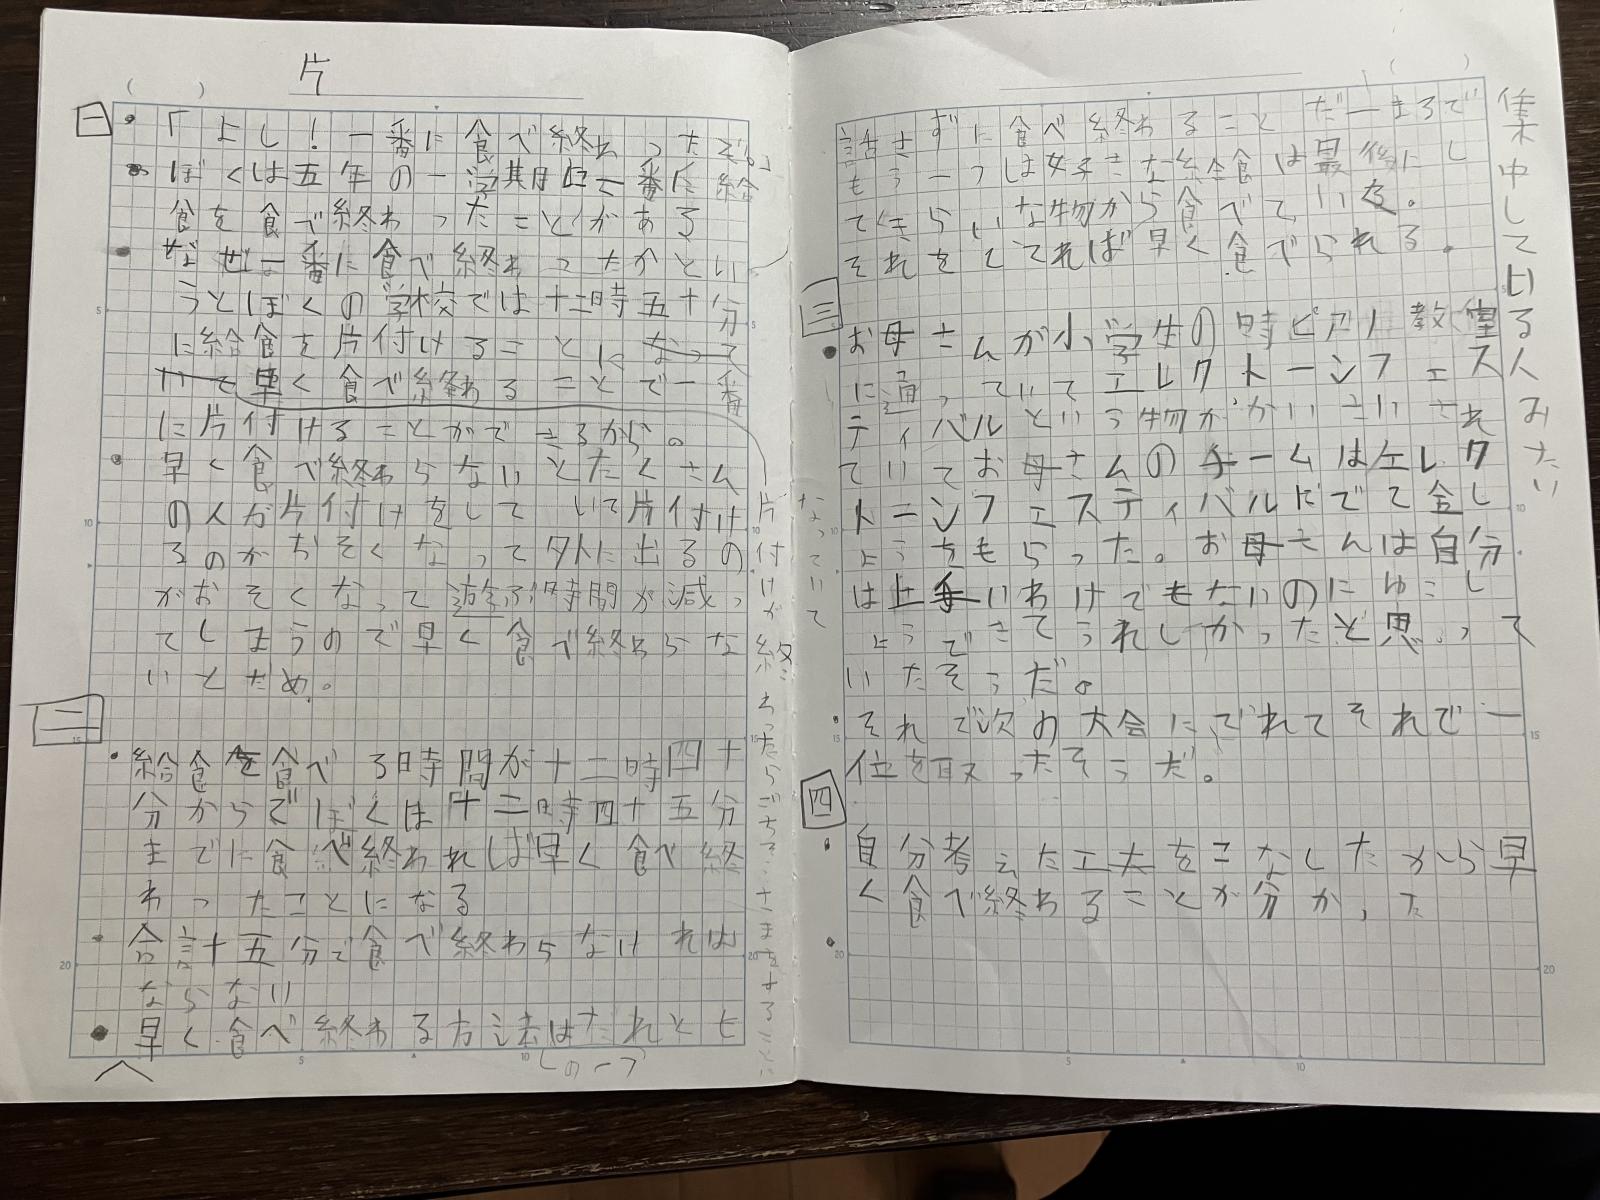 片
一
「よし！一番に食べ終わったぞ。」
ぼくは五年の一学期に一番に給
食を食べ終わったことがある
なぜ一番に食べ終わったかとい
うとぼくの学校では十二時五十分
に給食を片付けることになって
いて早く食べ終わることで一番
に片付けることができるから。
早く食べ終わらないとたくさん
の人が片付けをしていて片付け
るのがおそくなって外に出るの
がおそくなって遊ぶ時間が減っ
てしまうので早く食べ終わらな
いとだめ。
片付けが終わったらごちそうさまをすることに
なっていて
二
給食を食べる時間が十二時四十
分からでぼくは十二時四十五分
までに食べ終われば早く食べ終
わったことになる
合計十五分で食べ終わらなければ
ならない
早く食べ終わる方法はだれとも
の一つ
話さずに食べ終わることだまるで
集中している人みたい
もう一つは好きな給食は最後にし
てきらいな物から食べている。
それをしてれば早く食べられる。
三
お母さんが小学生の時ピアノ教室
に通っていてエレクトーンフェス
ティバルという物がかいさいされ
ていてお母さんのチームはエレク
トーンフェスティバルにでて金し
ょうをもらった。お母さんは自分
は上手いわけでもないのにゆうし
ょうできてうれしかったと思って
いたそうだ。
それで次の大会にでれてそれで一
位を取ったそうだ。
四
自分考えた工夫をこなしたから早
く食べ終わることが分かった